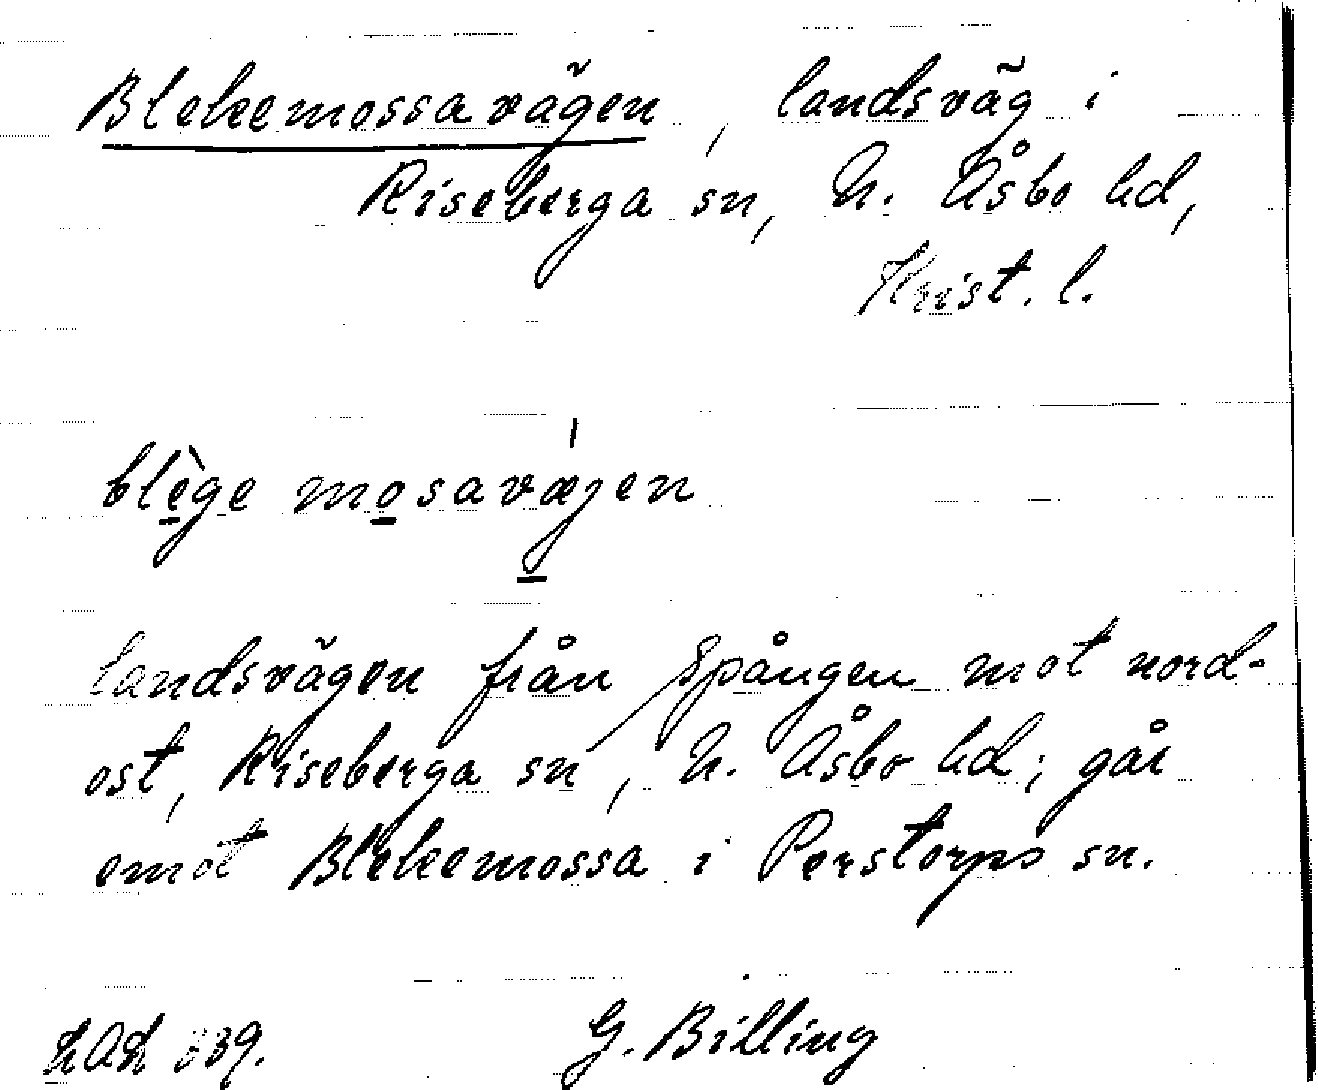 Blekemossavägen, landsväg i
Riseberga sn, N. Åsbo hd,
Krist. l.
blège mosavæjen
landsvägen från Spången mot nord-
ost, Riseberga sn, N. Åsbo hd; går
emot Blekemossa i Perstorps sn.
G. Billing